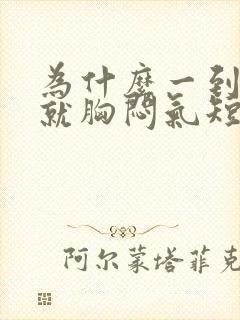 为什麽一到
就胸悶氣短
阿尔蒙塔菲克